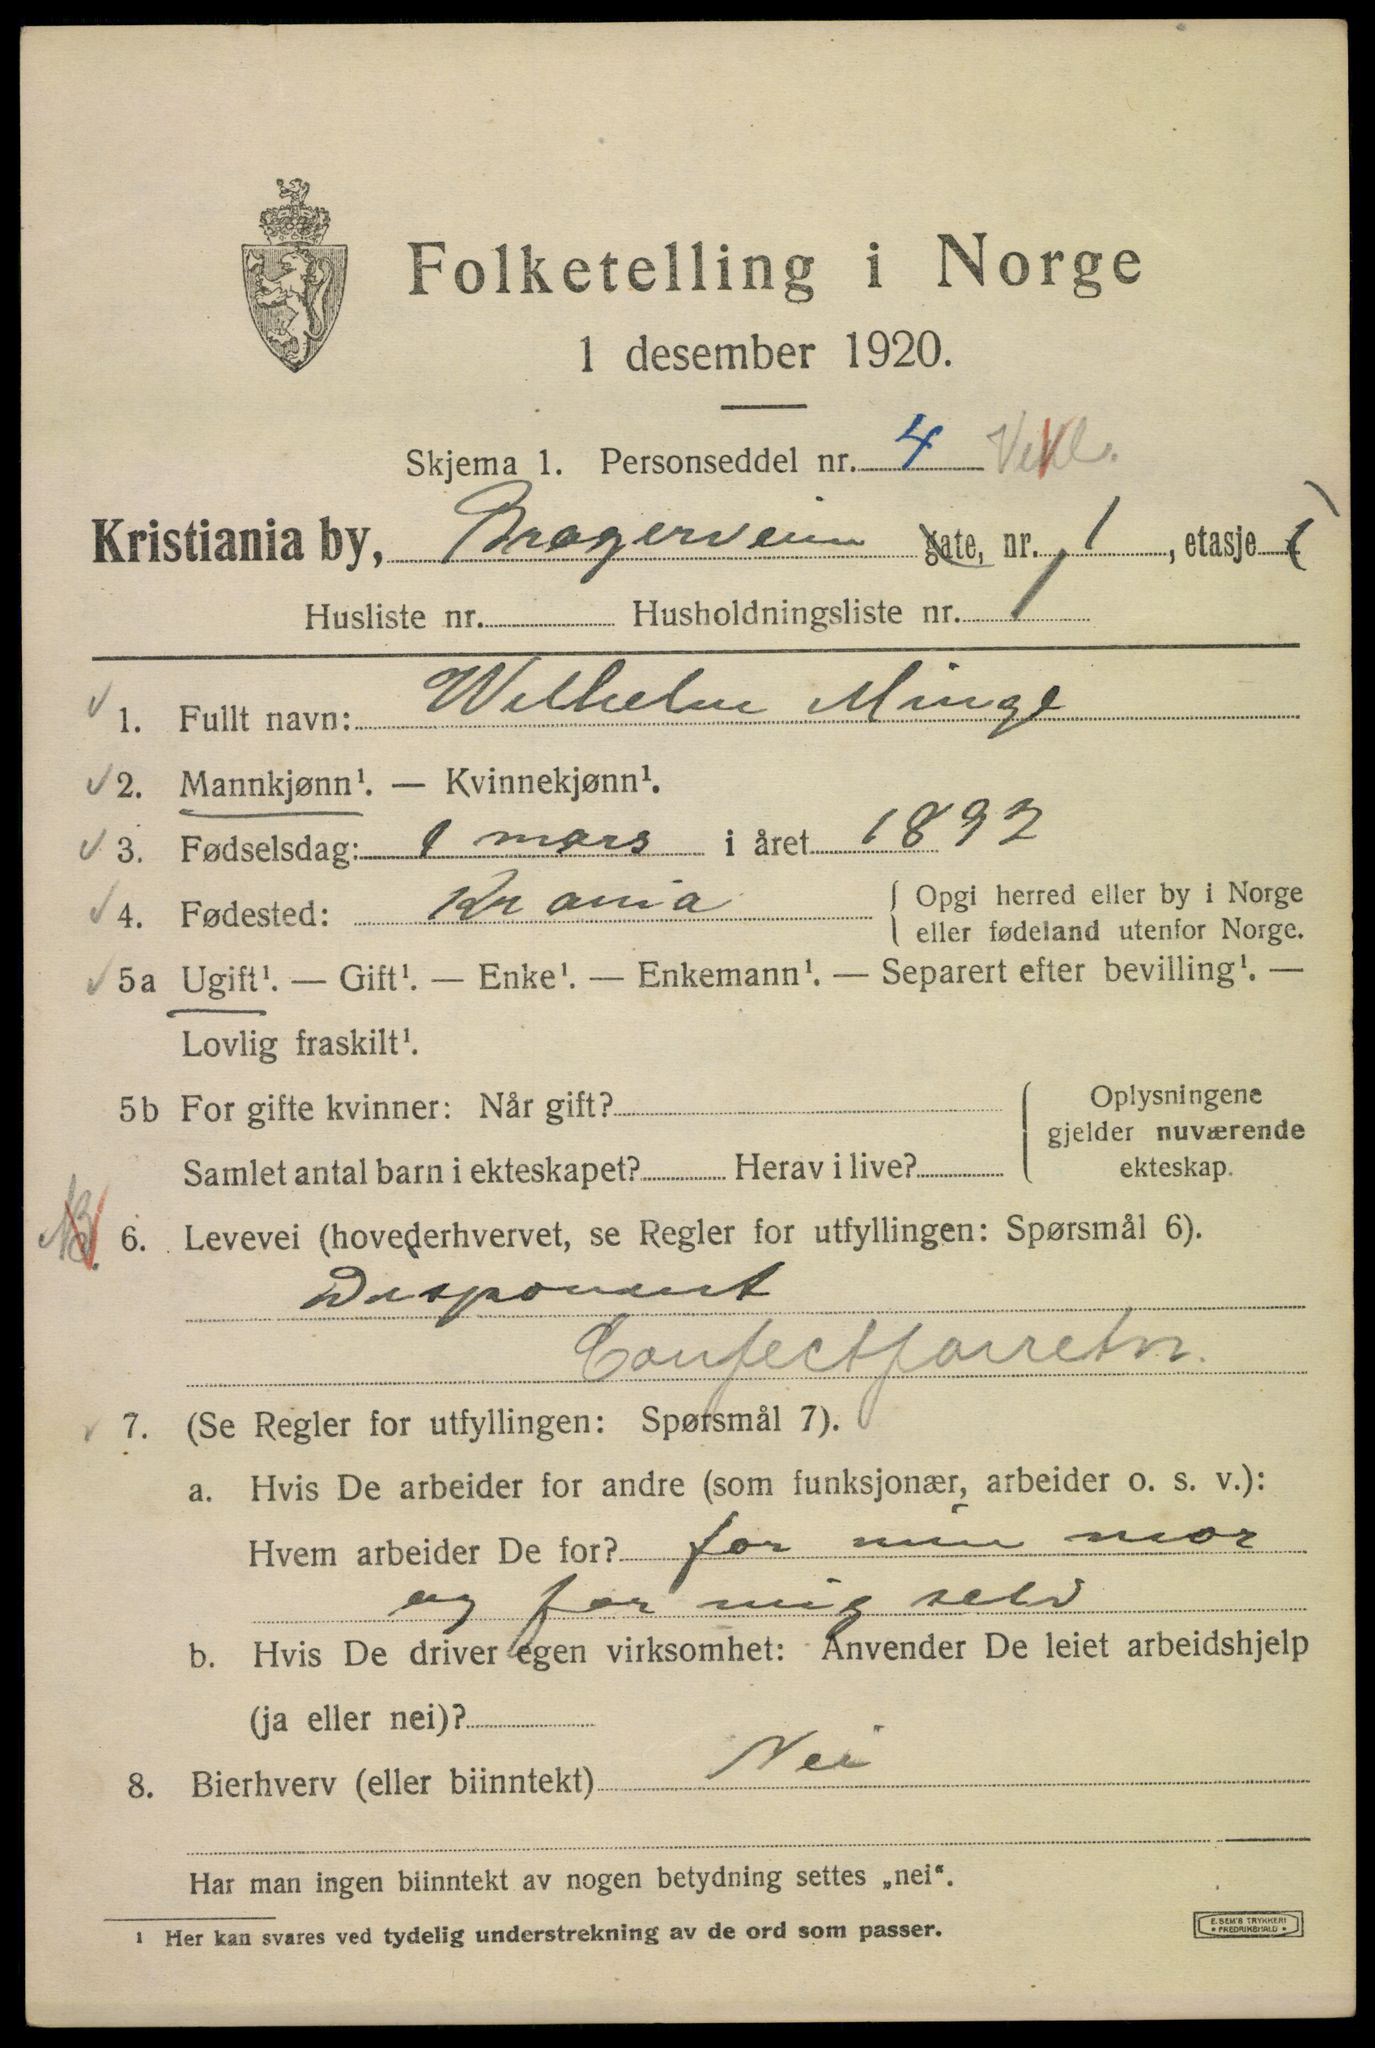 Folketelling i Norge
1 desember 1920.
Skjema 1. Personseddel nr. 4
Kristiania by, Bragerveien gate, nr. 1, etasje 1
Husliste nr. Husholdningsliste nr. 1
1. Fullt navn: Wilhelm Minge
2. Mannkjønn¹. — Kvinnekjønn¹.
3. Fødselsdag: 1 mars i året 1892
4. Fødested: Kr ania { Opgi herred eller by i Norge
eller fødeland utenfor Norge.
5a Ugift¹. — Gift¹. — Enke¹. — Enkemann¹. — Separert efter bevilling¹. —
Lovlig fraskilt¹.
5b For gifte kvinner: Når gift? { Oplysningene
gjelder nuværende
Samlet antal barn i ekteskapet? Herav i live? ekteskap.
NB. 6. Levevei (hovederhvervet, se Regler for utfyllingen: Spørsmål 6).
Disponent
Confectforretn.
7. (Se Regler for utfyllingen: Spørsmål 7).
a. Hvis De arbeider for andre (som funksjonær, arbeider o. s. v.):
Hvem arbeider De for? for min mor
og for mig selv
b. Hvis De driver egen virksomhet: Anvender De leiet arbeidshjelp
(ja eller nei)?
8. Bierhverv (eller biinntekt) Nei
Har man ingen biinntekt av nogen betydning settes „nei“.
¹ Her kan svares ved tydelig understrekning av de ord som passer.
E. SEM'S TRYKKERI
• FREDRIKSHALD •